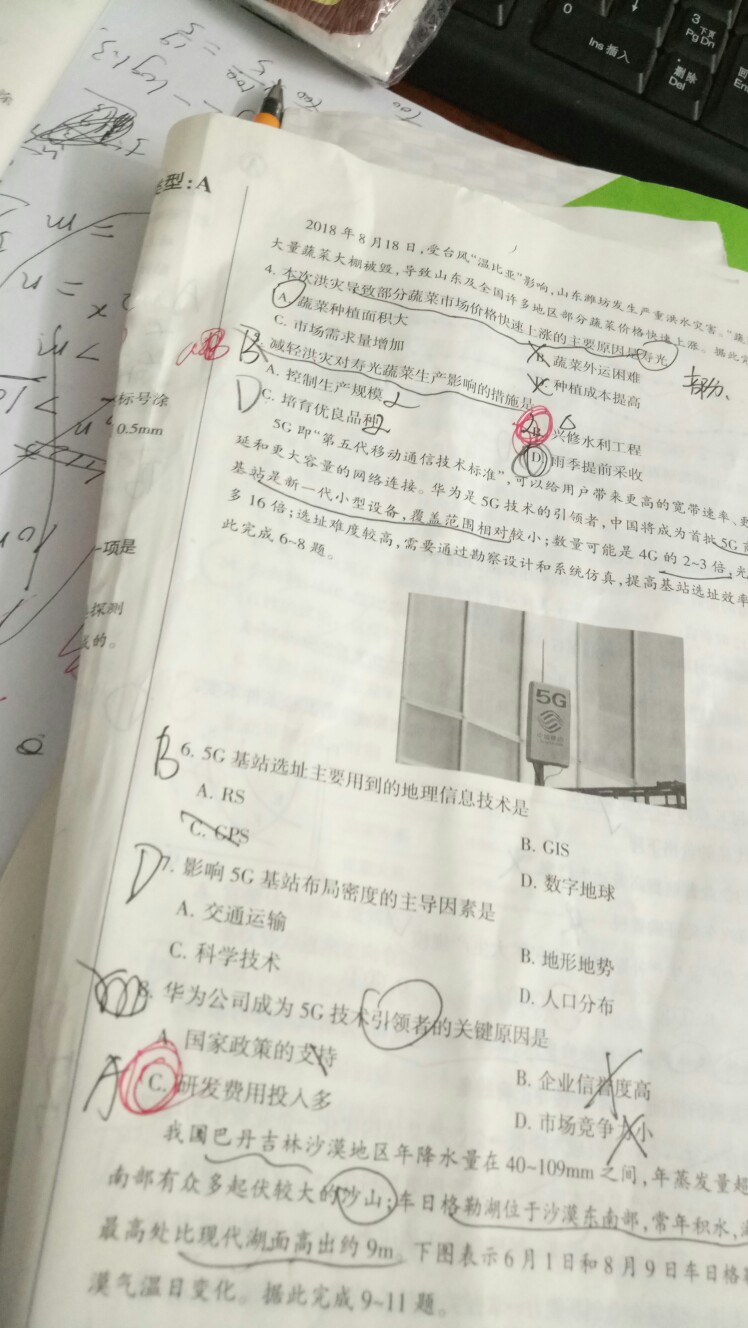 0
Ins 插入
3 下页
Pg Dn
删除
Del
型:A
2018年8月18日,受台风“温比亚”影响,山东潍坊发生严重洪水灾害。
大量蔬菜大棚被毁,导致山东及全国许多地区部分蔬菜价格快速上涨。
4. 本次洪灾导致部分蔬菜市场价格快速上涨的主要原因是寿光
A. 蔬菜种植面积大
B. 蔬菜外运困难
C. 市场需求量增加
D. 种植成本提高
B
减轻洪灾对寿光蔬菜生产影响的措施是
A. 控制生产规模
兴修水利工程
D
C. 培育优良品种
D. 雨季提前采收
标号涂
0.5mm
5G即“第五代移动通信技术标准”,可以给用户带来更高的宽带速率、
延和更大容量的网络连接。华为是5G技术的引领者,中国将成为首批5G
基站是新一代小型设备,覆盖范围相对较小;数量可能是4G的2~3倍,光
多16倍;选址难度较高,需要通过勘察设计和系统仿真,提高基站选址效率
此完成6~8题。
一项是
探测
的。
5G
B
6. 5G基站选址主要用到的地理信息技术是
A. RS
B. GIS
C. GPS
D. 数字地球
D
7. 影响5G基站布局密度的主导因素是
A. 交通运输
B. 地形地势
C. 科学技术
D. 人口分布
8. 华为公司成为5G技术引领者的关键原因是
A. 国家政策的支持
B. 企业信誉度高
A
C. 研发费用投入多
D. 市场竞争力小
我国巴丹吉林沙漠地区年降水量在40~109mm之间,年蒸发量超
南部有众多起伏较大的沙山;车日格勒湖位于沙漠东南部,常年积水,
最高处比现代湖面高出约9m。下图表示6月1日和8月9日车日格
漠气温日变化。据此完成9~11题。